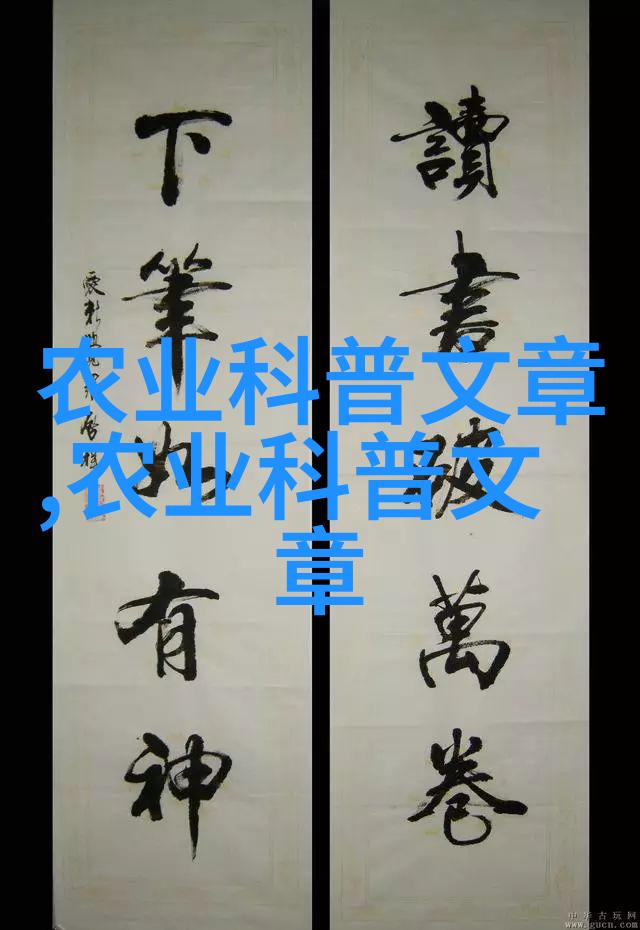 讀書破萬卷
下筆如有神
农业科普文章
,农业科普文
章
中华古玩网
www.gucn.com